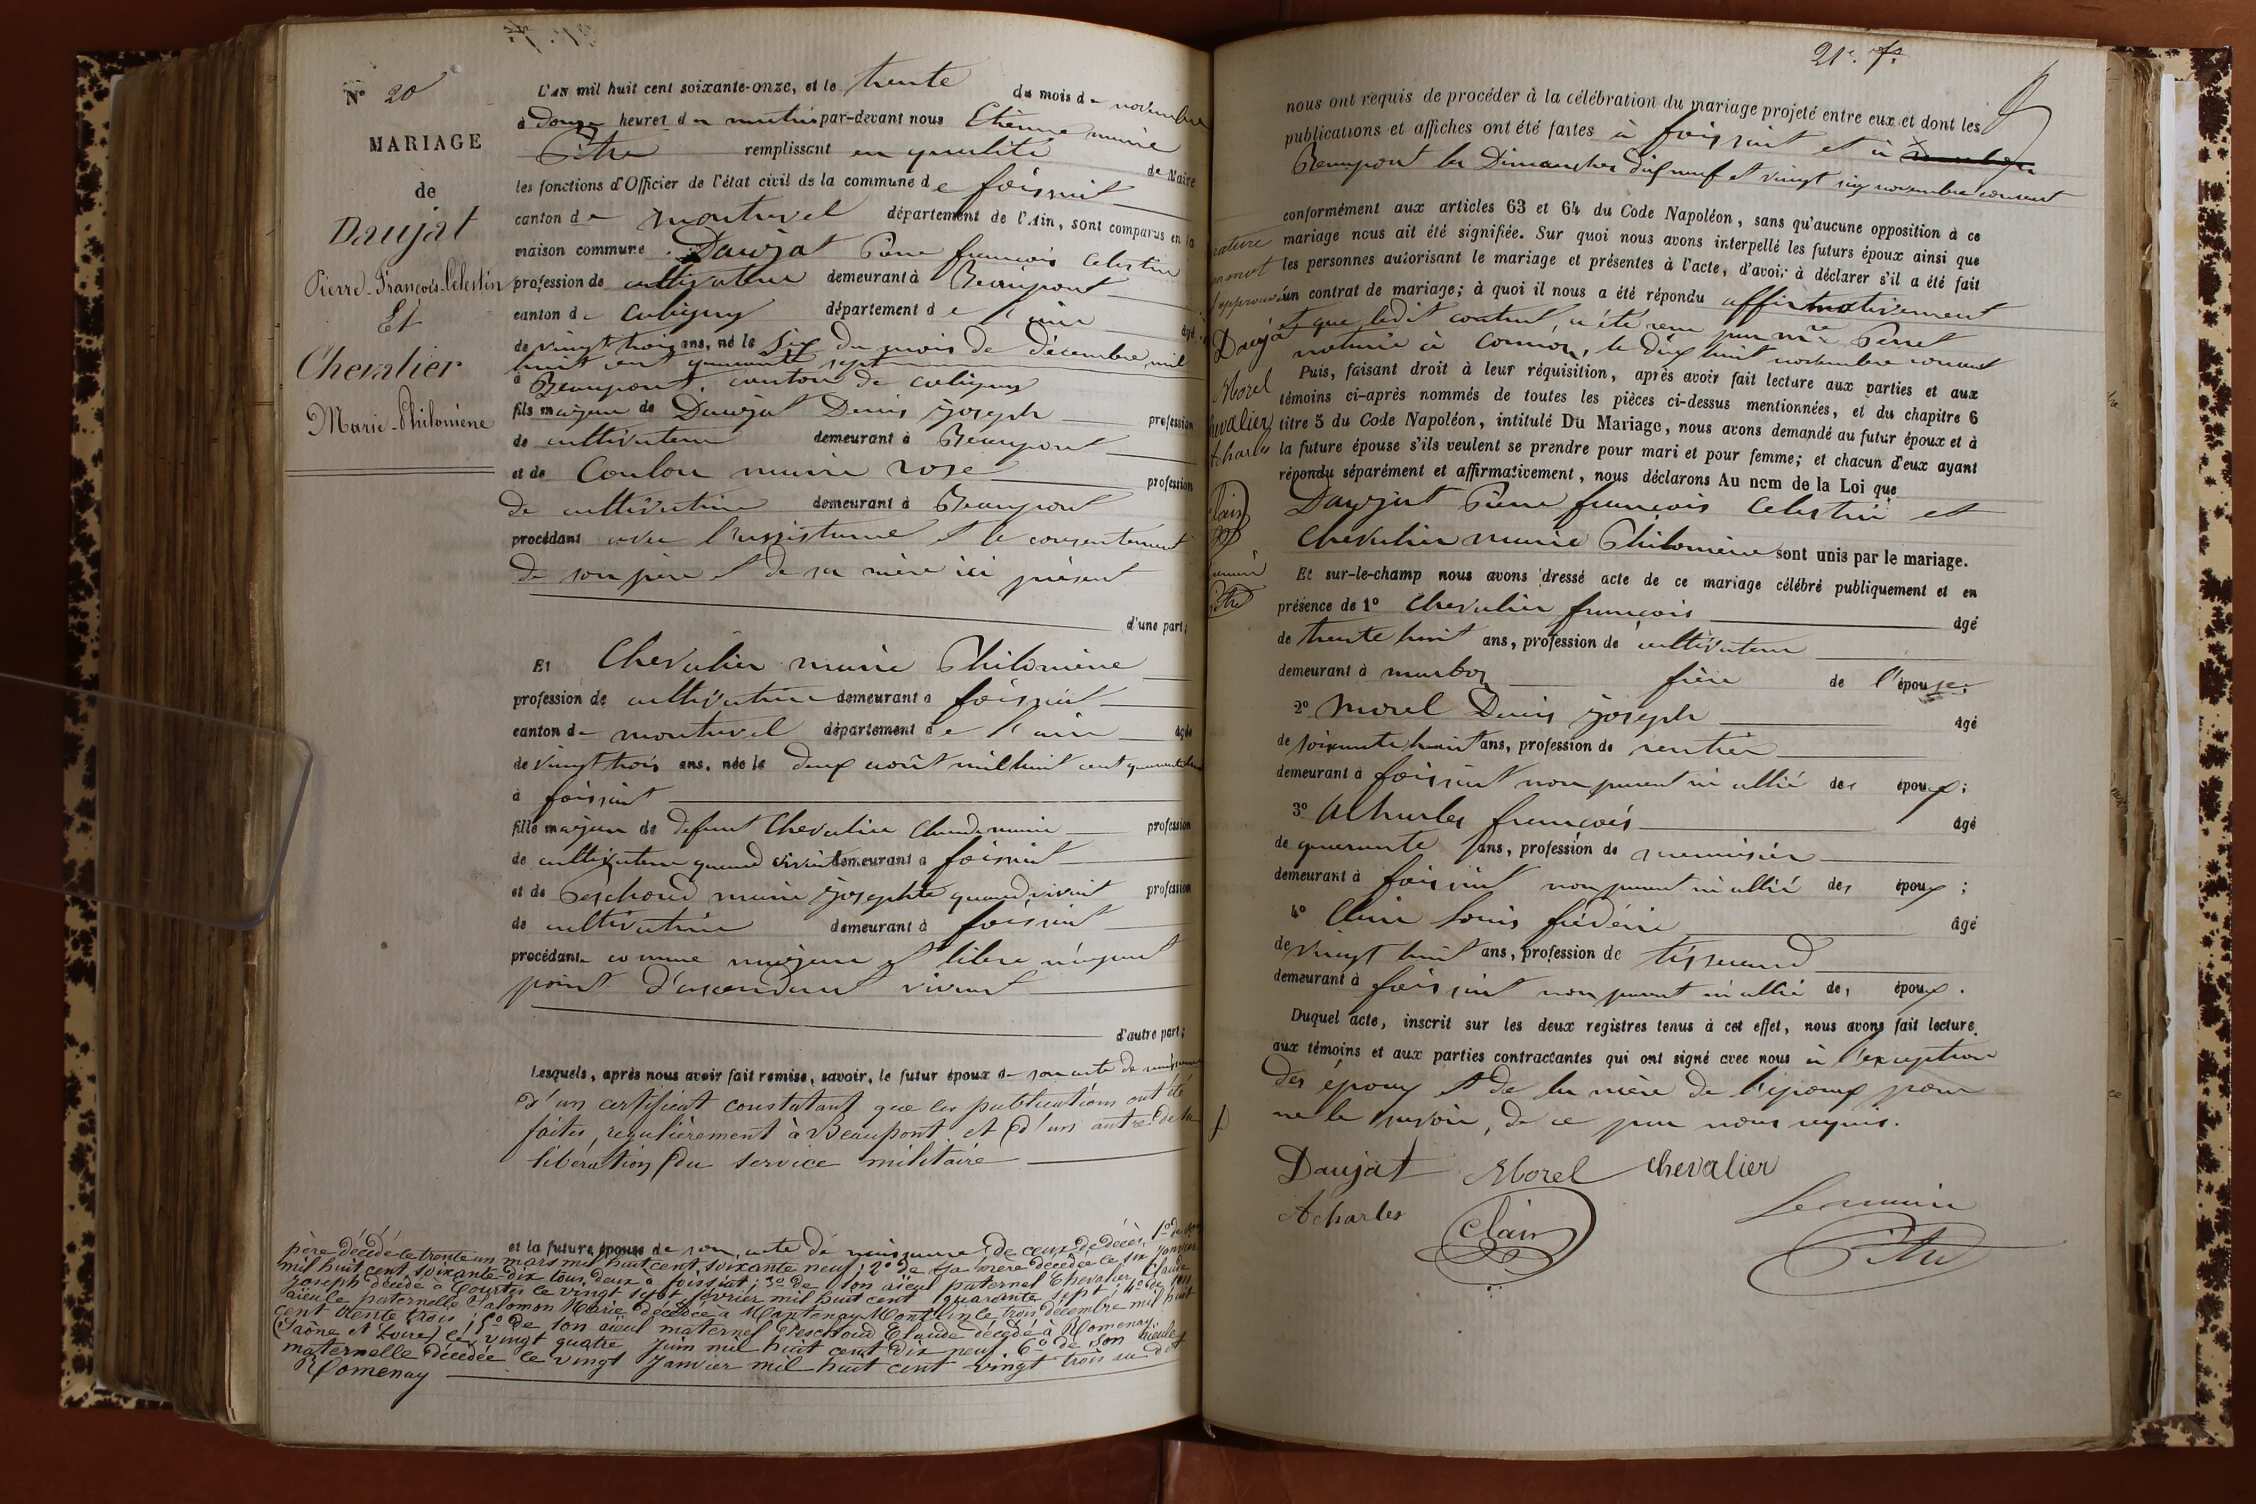 N° 20
MARIAGE
de
Daujat
Pierre-François-Celestin
Et
Chevalier
Marie-Philomène
L'an mil huit cent soixante-onze, et le trente du mois de novembre
à douze heures du matin par-devant nous Etienne marie
Pitre remplissant en qualité de Maire
les fonctions d'Officier de l'état civil de la commune de foissiat
canton de montrevel département de l'Ain, sont comparus en la
maison commune Daujat Pierre françois Celestin
profession de cultivateur demeurant à Beaupont
canton de Coligny département de l'ain âgé
de vingt trois ans, né le six du mois de décembre mil
huit cent quarante sept
à Beaupont, canton de coligny
fils majeur de Daujat Denis joseph profession
de cultivateur demeurant à Beaupont
et de Coulon marie rose profession
de cultivatrice demeurant à Beaupont
procédant avec l'assistance et le consentement
de son père et de sa mère ici présent
d'une part;
Et Chevalier marie Philomène
profession de cultivatrice demeurant à foissiat
canton de montrevel département de l'ain âgée
de vingt trois ans, née le deux août mil huit cent quarante huit
à foissiat
fille majeure de defunt Chevalier Claude marie profession
de cultivateur quand vivait demeurant à foissiat
et de Peschoud marie josephte quand vivait profession
de cultivatrice demeurant à foissiat
procédant comme majeure et libre n'ayant
point d'ascendant vivant
d'autre part;
Lesquels, après nous avoir fait remise, savoir, le futur époux de son acte de naissance
d'un certificat constatant que les publications ont été
faites, regulièrement à Beaupont et d'un autre de la
libération du service militaire
et la future épouse de son acte de naissance, de ceux de décès, 1° de son
père décédé le trente un mars mil huit cent soixante neuf; 2° de sa mère décédée le six janvier
mil huit cent soixante-dix tous deux à foissiat; 3° de son aïeul paternel Chevalier Claude
Joseph décédé à Courtes le vingt sept février mil huit cent quarante sept; 4° de son
aïeule paternelle Salomon Marie décédée à Mantenay-Montlin le trois décembre mil huit
cent trente trois; 5° de son aïeul maternel Peschoud Claude décédé à Romenay
(Saône et Loire) le vingt quatre Juin mil huit cent dix neuf 6° de son aïeule
maternelle décédée le vingt Janvier mil huit cent vingt trois au dit
Romenay
21e. f.
nous ont requis de procéder à la célébration du mariage projeté entre eux et dont les
publications et affiches ont été faites à foissiat et à
Beaupont les Dimanches dix neuf et vingt six novembre courant
conformément aux articles 63 et 64 du Code Napoléon, sans qu'aucune opposition à ce
mariage nous ait été signifiée. Sur quoi nous avons interpellé les futurs époux ainsi que
les personnes autorisant le mariage et présentes à l'acte, d'avoir à déclarer s'il a été fait
un contrat de mariage; à quoi il nous a été répondu affirmativement
et que ledit contrat, a été reçu par Me Perret
notaire à Cormoz, le dix huit novembre courant
Puis, faisant droit à leur réquisition, après avoir fait lecture aux parties et aux
témoins ci-après nommés de toutes les pièces ci-dessus mentionnées, et du chapitre 6
titre 5 du Code Napoléon, intitulé Du Mariage, nous avons demandé au futur époux et à
la future épouse s'ils veulent se prendre pour mari et pour femme; et chacun d'eux ayant
répondu séparément et affirmativement, nous déclarons Au nom de la Loi que
Daujat Pierre françois Celestin et
Chevalier marie Philomène sont unis par le mariage.
Et sur-le-champ nous avons dressé acte de ce mariage célébré publiquement et en
présence de 1° Chevalier françois âgé
de trente huit ans, profession de cultivateur
demeurant à marboz frère de l'épouse.
2° Morel Denis joseph âgé
de soixante huit ans, profession de rentier
demeurant à foissiat non parent ni allié des époux;
3° Acharles françois âgé
de quarante ans, profession de menuisier
demeurant à foissiat non parent ni allié des époux;
4° Clair louis fréderic âgé
de vingt huit ans, profession de tisserand
demeurant à foissiat non parent ni allié des époux.
Duquel acte, inscrit sur les deux registres tenus à cet effet, nous avons fait lecture
aux témoins et aux parties contractantes qui ont signé avec nous à l'exception
des époux et de la mère de l'époux pour
ne le savoir, de ce par nous requis.
Daujat Morel chevalier
Acharles Clair Le maire
Pitre